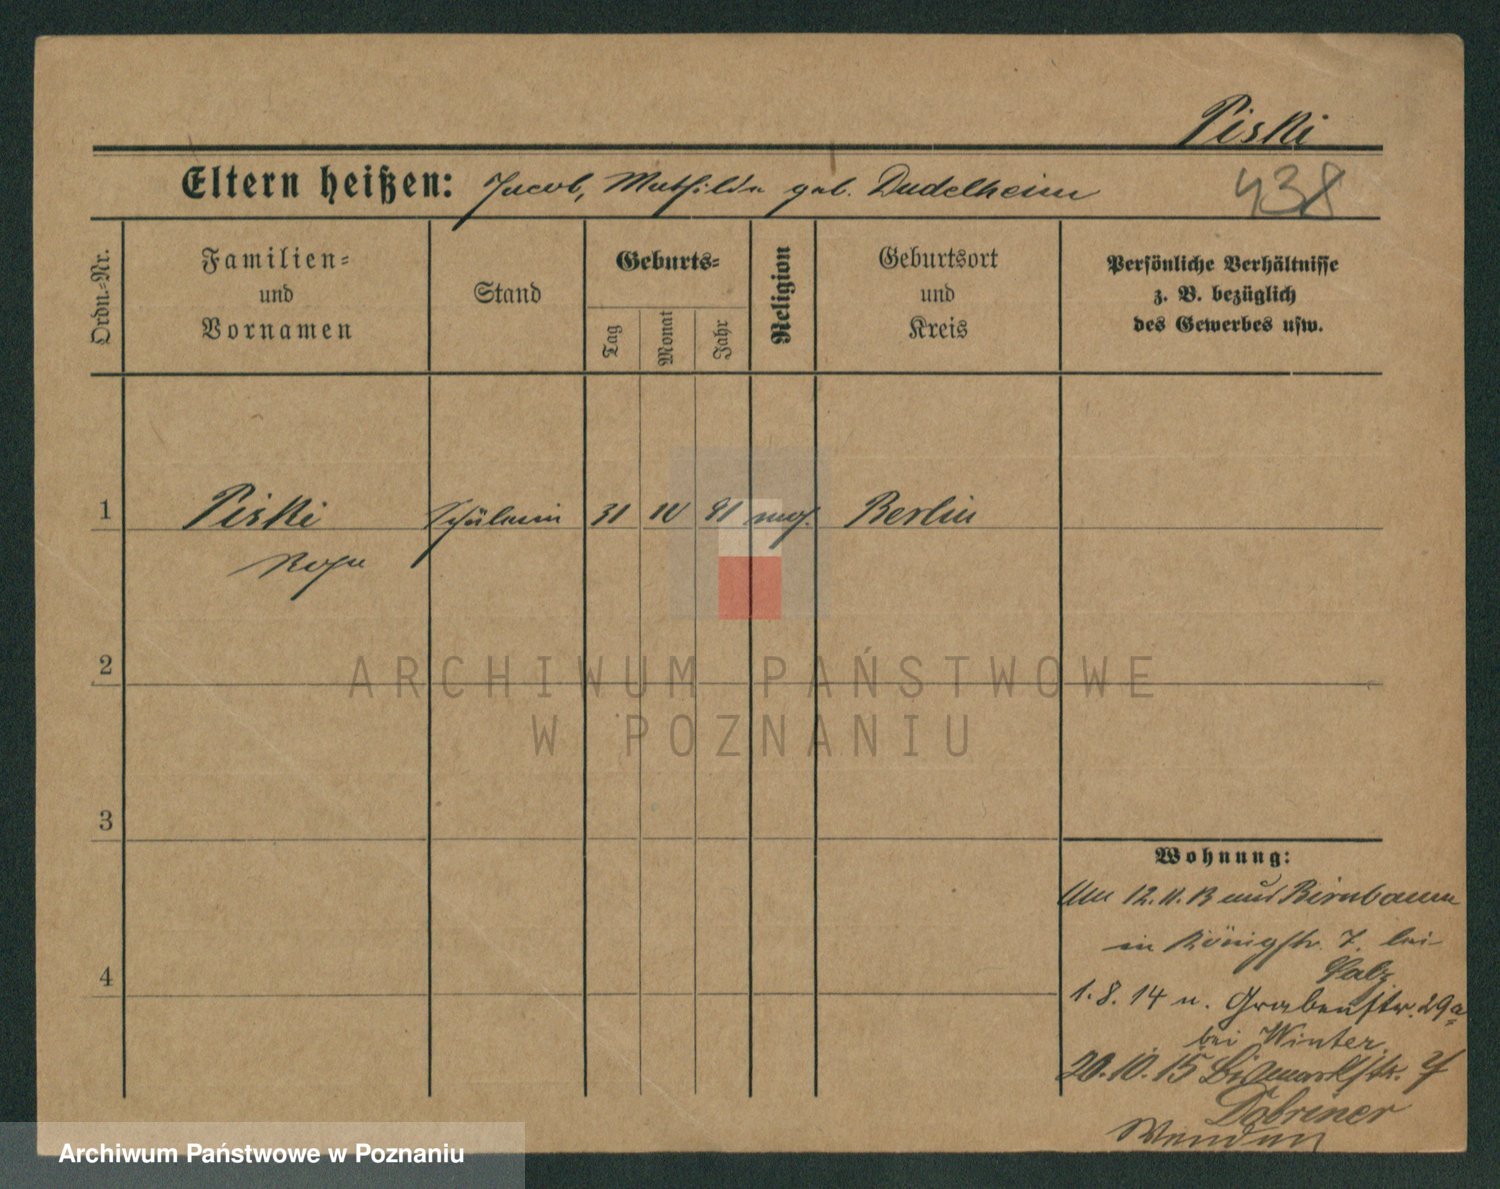 Piski
Eltern heißen: Jacob, Mathilde geb. Dudelheim
438
Ordn.-Nr.
Familien-
und
Vornamen
Stand
Geburts-
Tag
Monat
Jahr
Religion
Geburtsort
und
Kreis
Persönliche Verhältnisse
z. B. bezüglich
des Gewerbes usw.
1 Piski Schülerin 31 10 91 mos. Berlin
Rosa
2
3
4
Wohnung:
Am 12.11.13 aus Birnbaum
in Königstr. 7. bei
Salz
1.8.14 n. Grabenstr. 29a
bei Winter
20.10.15 Bismarckstr. 7
Dobriner
Wenden
ARCHIWUM PAŃSTWOWE
W POZNANIU
Archiwum Państwowe w Poznaniu